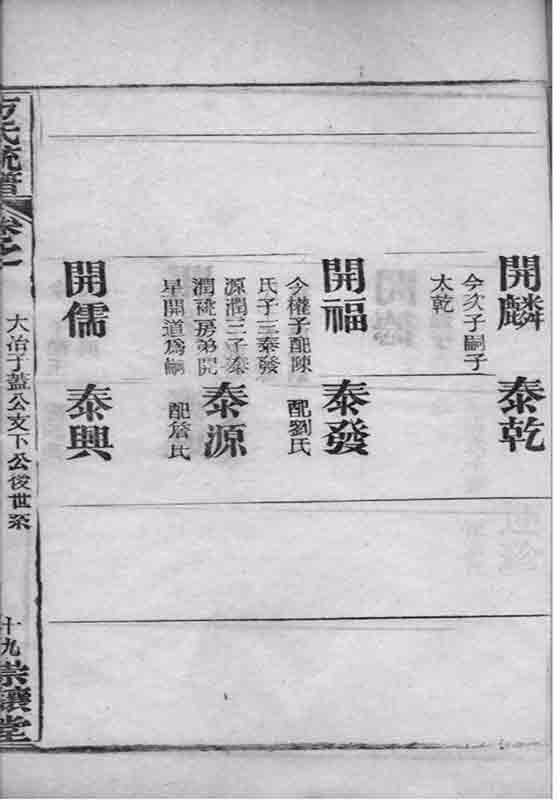 開麟
今次子嗣子
太乾
泰乾
開福
今權子配陳
氏子三泰發
源潤三子泰
潤祧房弟開
星開道爲嗣
泰發
配劉氏
泰源
配詹氏
開儒
泰興
方氏統譜
卷之
大冶子蓋公支下公後世系
十九
崇讓堂